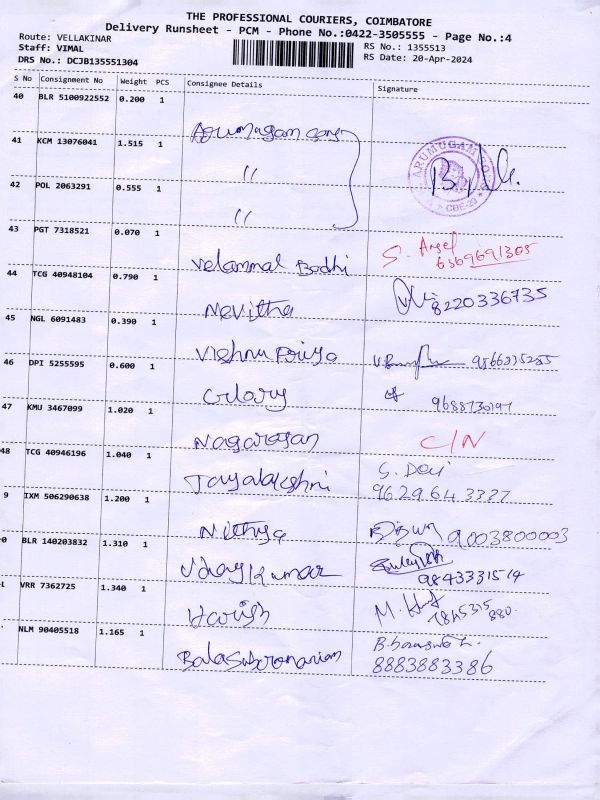 THE PROFESSIONAL COURIERS, COIMBATORE
Delivery Runsheet - PCM - Phone No.:0422-3505555 - Page No.:4
Route: VELLAKINAR
RS No.: 1355513
Staff: VIMAL
RS Date: 20-Apr-2024
DRS No.: DCJB135551304
S No Consignment No Weight PCS Consignee Details Signature
40 BLR 5100922552 0.200 1
Arumugam
41 KCM 13076041 1.515 1
"
ARUMUGAM CBE-29
42 POL 2063291 0.555 1
"
43 PGT 7318521 0.070 1
Velammal Bodhi S. 6369691305
44 TCG 40948104 0.790 1
Nevitha 8220336735
45 NGL 6091483 0.390 1
Vishnu Priya
46 DPI 5255595 0.600 1
47 KMU 3467099 1.020 1
Nagarajan C/N
48 TCG 40946196 1.040 1
S. Devi
Jayalakshmi 9629643327
9 IXM 506290638 1.200 1
Nithya 9003800003
0 BLR 140203832 1.310 1
Udhay Kumar
9843331514
VRR 7362725 1.340 1
Harish M. 7845315 880.
NLM 90405518 1.165 1
Balasubramanian 8883883386